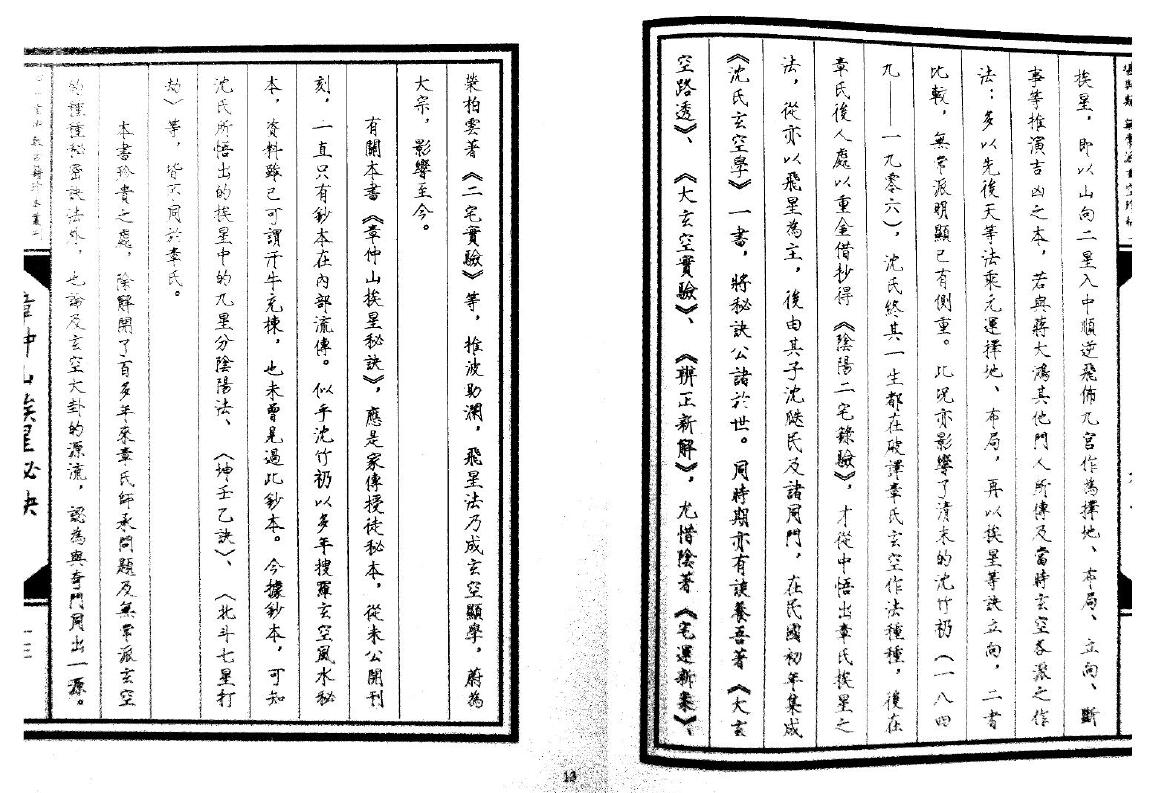 挨星，即以山向二星入中順逆飛佈九宮作為擇地、布局、立向、斷
事等推演吉凶之本，若與蔣大鴻其他門人所傳及當時玄空各派之作
法：多以先後天等法乘元運擇地、布局，再以挨星等訣立向，二書
比較，無常派明顯已有側重。此況亦影響了清末的沈竹礽（一八四
九——一九零六），沈氏終其一生都在破譯章氏玄空作法種種，後在
章氏後人處以重金借抄得《陰陽二宅錄驗》，才從中悟出章氏挨星之
法，從亦以飛星為主，後由其子沈瓞民及諸同門，在民國初年集成
《沈氏玄空學》一書，將秘訣公諸於世。同時期亦有談養吾著《大玄
空路透》、《大玄空實驗》、《辨正新解》，尤惜陰著《宅運新案》、
榮柏雲著《二宅實驗》等，推波助瀾，飛星法乃成玄空顯學，蔚為
大宗，影響至今。
有關本書《章仲山挨星秘訣》，應是家傳授徒秘本，從未公開刊
刻，一直只有鈔本在內部流傳。似乎沈竹礽以多年搜羅玄空風水秘
本，資料雖已可謂汗牛充棟，也未曾見過此鈔本。今據鈔本，可知
沈氏所悟出的挨星中的九星分陰陽法、〈坤壬乙訣〉、〈北斗七星打
劫〉等，皆不同於章氏。
本書珍貴之處，除解開了百多年來章氏師承問題及無常派玄空
的種種秘密訣法外，也論及玄空大卦的源流，認為與奇門同出一源。
章仲山挨星秘訣
一三
13